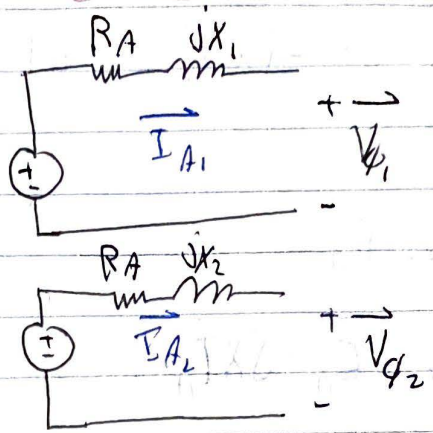 R_A jX_1
+
I_A1
V_ϕ1
+
-
-
R_A jX_2
+
I_A2
V_ϕ2
+
-
-